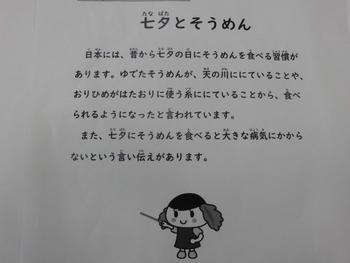 七夕とそうめん
日本には、昔から七夕の日にそうめんを食べる習慣が
あります。ゆでたそうめんが、天の川ににていることや、
おりひめがはたおりに使う糸ににていることから、食べ
られるようになったと言われています。
また、七夕にそうめんを食べると大きな病気にかから
ないという言い伝えがあります。